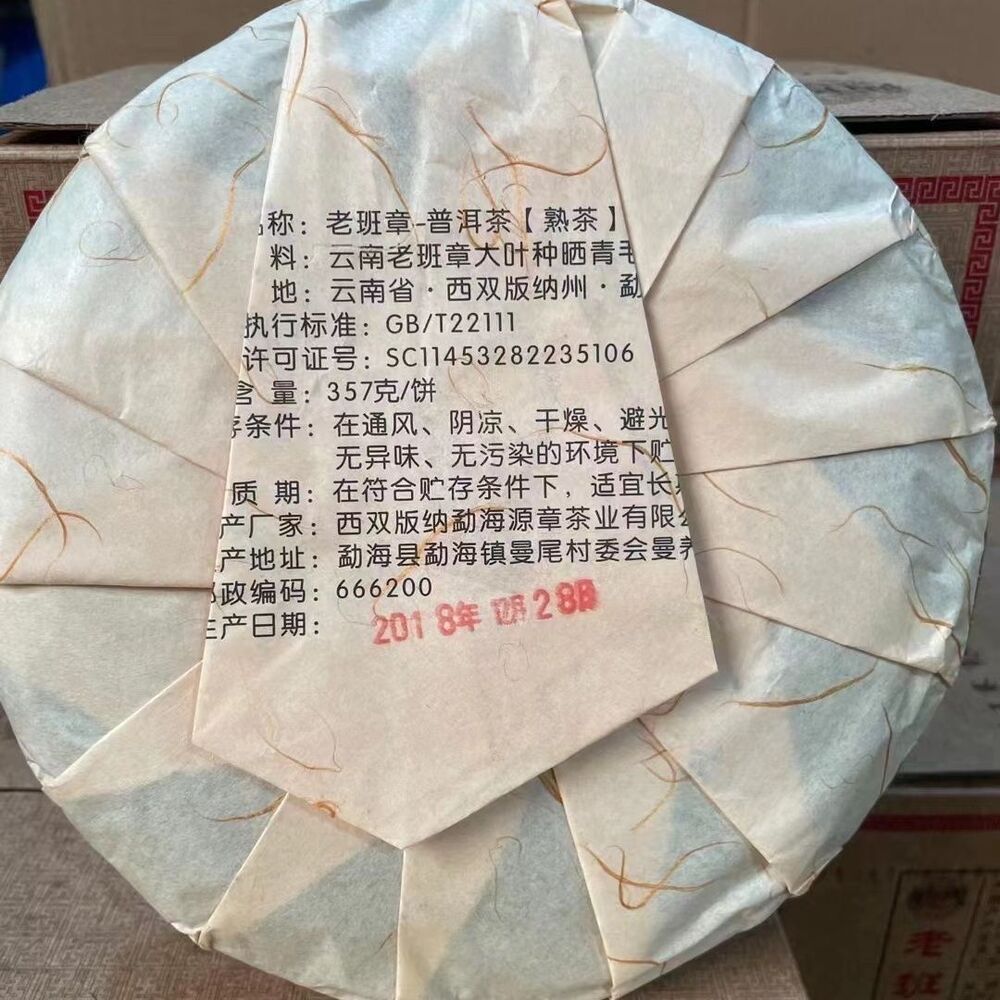 称：老班章-普洱茶【熟茶】
料：云南老班章大叶种晒青毛
地：云南省·西双版纳州·勐
执行标准：GB/T22111
许可证号：SC11453282235106
含 量：357克/饼
存条件：在通风、阴凉、干燥、避光
无异味、无污染的环境下贮
质 期：在符合贮存条件下，适宜长期
产厂家：西双版纳勐海源章茶业有限公
产地址：勐海县勐海镇曼尾村委会曼养
邮政编码：666200
生产日期：
2018年 28日
老班